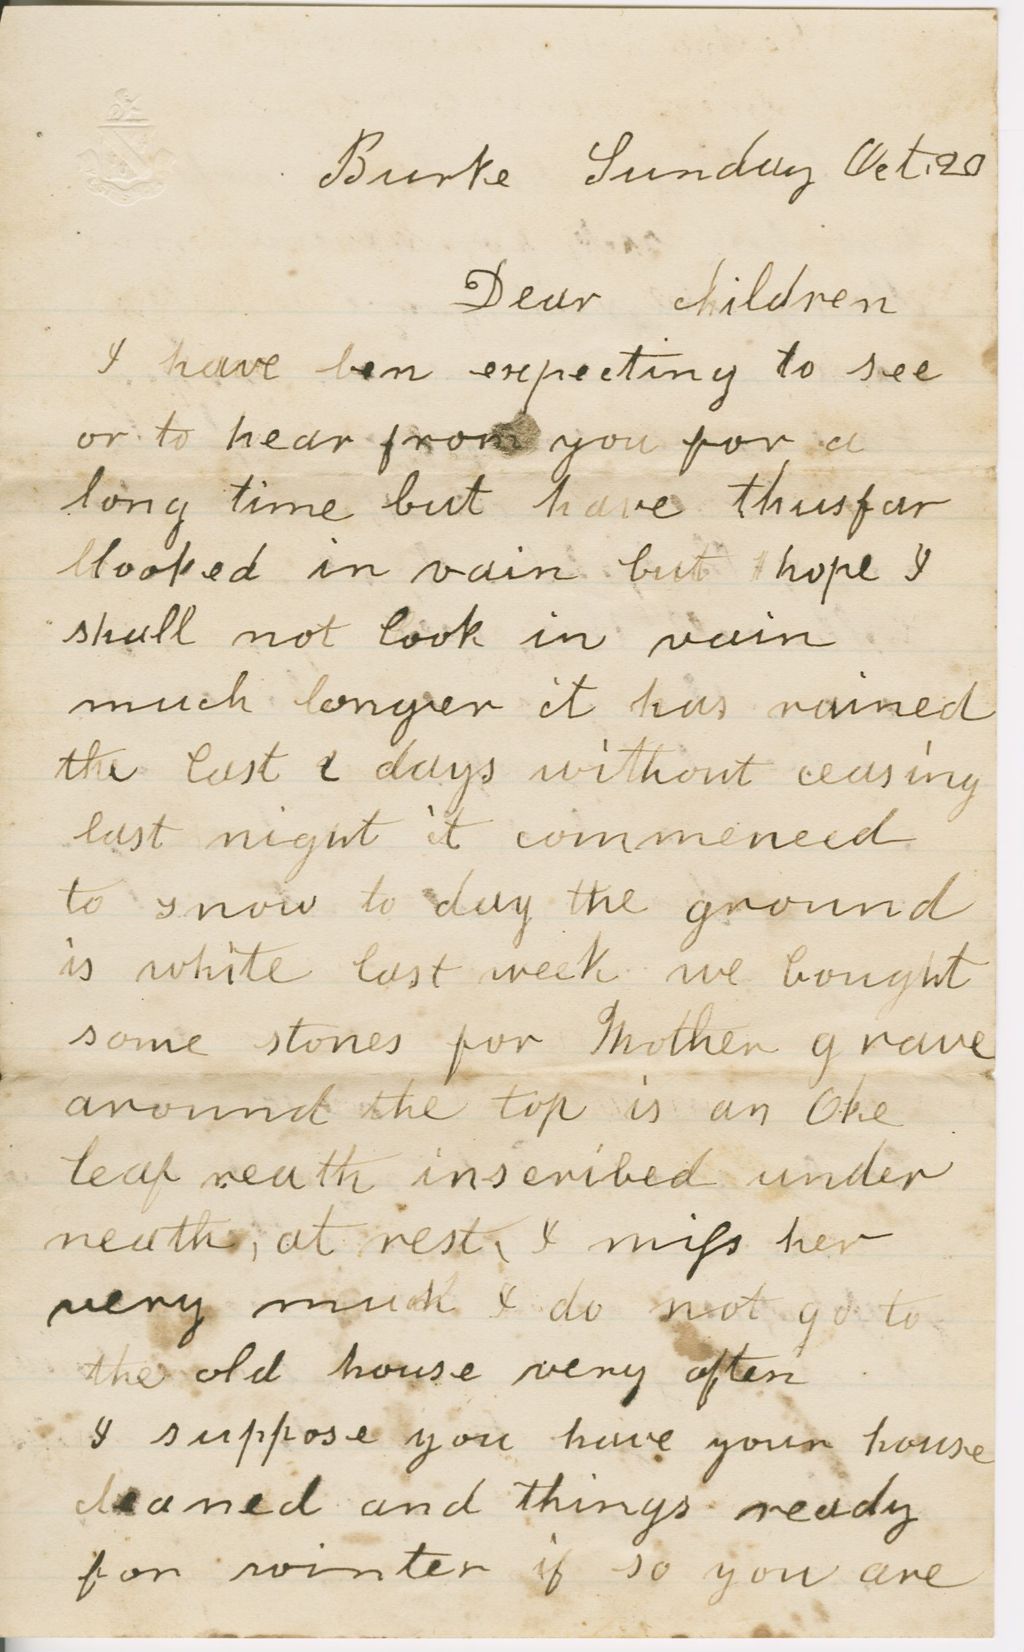 Burke Sunday Oct. 20
Dear children
I have ben expecting to see
or to hear from you for a
long time but have thusfar
looked in vain but hope I
shall not look in vain
much longer it has rained
the last 2 days without ceasing
last night it commenced
to snow to day the ground
is white last week we bought
some stones for Mother grave
around the top is an Oke
leaf reath inscribed under
neath, at rest, I miss her
very much I do not go to
the old house very often
I suppose you have your house
cleaned and things ready
for winter if so you are